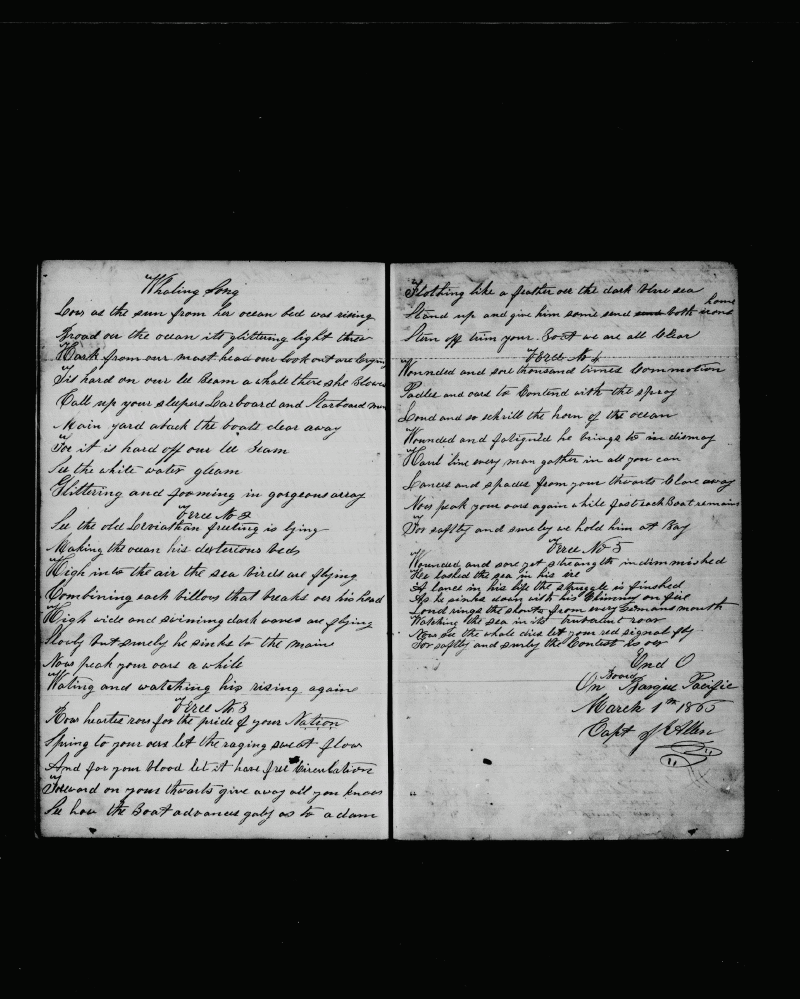 Whaling Song
Low as the sun from her ocean bed was rising
Broad on the ocean its glittering light threw
Hark from our mast head our look out are Crying
Tis hard on our lee Beam a whale there she Blows
Call up your sleepers Larboard and Starboard men
Main yard aback the boats clear away
For it is hard off our lee Beam
See the white water gleam
Glittering and fooming in gorgeous array
Verce No 2
See the old Leviathan is lying
Making the ocean his beds
High into the air the sea birds are flying
Combining each billow that breaks oer his head
High wide and swiming dark waves are flying
Slowly but surely he sinks to the main
Now peak your oars a while
Wating and watching his rising again
Verce No 3
Row hearties row for the pride of your Nation
Spring to your oars let the raging sweat flow
And for your blood let it have free Circulation
Forward on your thwarts give away all you know
See how the Boat advances galy as to a dam
Flothing like a feather oer the dark blue sea
Stand up and give him some send both irons home
Stern off trim your Boat we are all Clear
Verce No 4
Wounded and sore thousand times Commotion
Padles and oars to Contend with the spray
Loud and so schrill the horn of the ocean
Wounded and fatigued he brings to in dismay
Haul line every man gather in all you can
Lances and spades from your thwarts Clare away
Now peak your oars again while fast each Boat remains
For saftly and surely we hold him at Bay
Verce No 5
Wounded and sore yet streangth indimmished
He lashed the sea in his ire
A lance in his life the struggle is finshed
As he sinks down with his Chimny on fire
Loud rings the shouts from every Seamans mouth
Watching the sea in its turbulent roar
Now see the whale dies let your red signal fly
For saftly and surely the Contest is oer
End O
On Board Barque Pacific
March 1th 1865
Capt J Allen